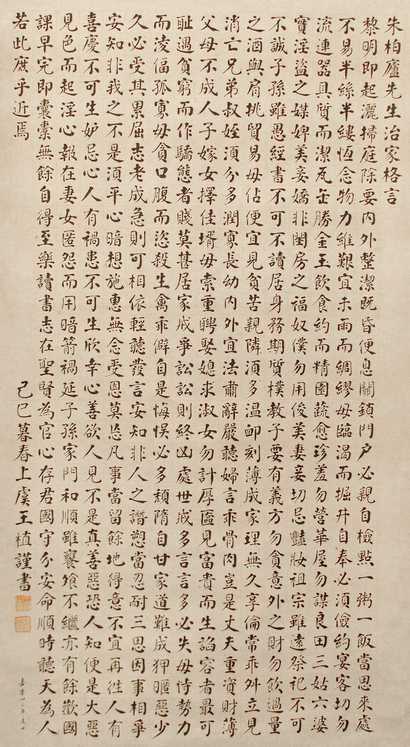 朱柏廬先生治家格言
黎明即起灑掃庭除要內外整潔既昏便息關鎖門户必親自檢點一粥一飯當思來處
不易半絲半縷恆念物力維艱宜未雨而綢繆毋臨渴而掘井自奉必須儉約宴客切勿
流連器具質而潔瓦缶勝金玉飲食約而精園蔬愈珍羞勿營華屋勿謀良田三姑六婆
實淫盜之媒婢美妾嬌非閨房之福奴僕勿用俊美妻妾切忌豔妝祖宗雖遠祭祀不可
不誠子孫雖愚經書不可不讀居身務期質樸教子要有義方勿貪意外之財勿飲過量
之酒與肩挑貿易毋佔便宜見貧苦親鄰須多溫卹刻薄成家理無久享倫常乖外立見
消亡兄弟叔姪須分多潤寡長幼內外宜法肅辭嚴聽婦言乖骨肉豈是丈夫重資財薄
父母不成人子嫁女擇佳壻毋索重聘娶媳求淑女勿計厚奩見富貴而生諂容者最可
恥遇貧窮而作驕態者賤莫甚居家戒爭訟訟則終凶處世戒多言言多必失毋恃勢力
而凌偪孤寡毋貪口腹而恣殺生禽乖僻自是悔悞必多頽惰自甘家道難成狎暱惡少
久必受其累屈志老成急則可相依輕聽發言安知非人之譖愬當忍耐三思因事相爭
安知非我之不是須平心暗想施惠無念受恩莫忘凡事當留餘地得意不宜再往人有
喜慶不可生妒忌心人有禍患不可生欣幸心善欲人見不是真善惡恐人知便是大惡
見色而起淫心報在妻女匿怨而用暗箭禍延子孫家門和順雖饔飧不繼亦有餘歡國
課早完即囊橐無餘自得至樂讀書志在聖賢為官心存君國守分安命順時聽天為人
若此庶乎近焉
己巳暮春上虞王植謹書